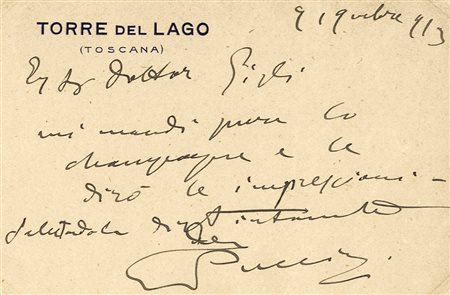 TORRE DEL LAGO
(TOSCANA)
9 913
Dottor Gigli
mi mandi pure lo
champagne e le
dirò le impressioni –
salutandola distintamente
Puccini